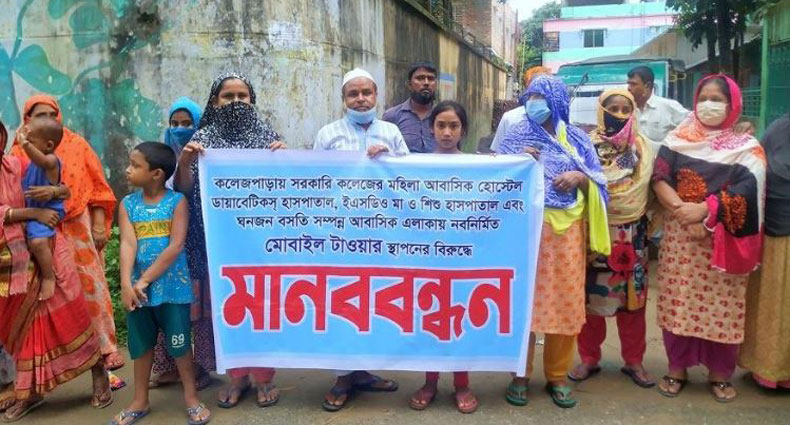 কলেজপাড়ায় সরকারি কলেজের মহিলা আবাসিক হোস্টেল
ডায়াবেটিকস্ হাসপাতাল, ইএসডিও মা ও শিশু হাসপাতাল এবং
ঘনজন বসতি সম্পন্ন আবাসিক এলাকায় নবনির্মিত
মোবাইল টাওয়ার স্থাপনের বিরুদ্ধে
মানববন্ধন
PAIN
69